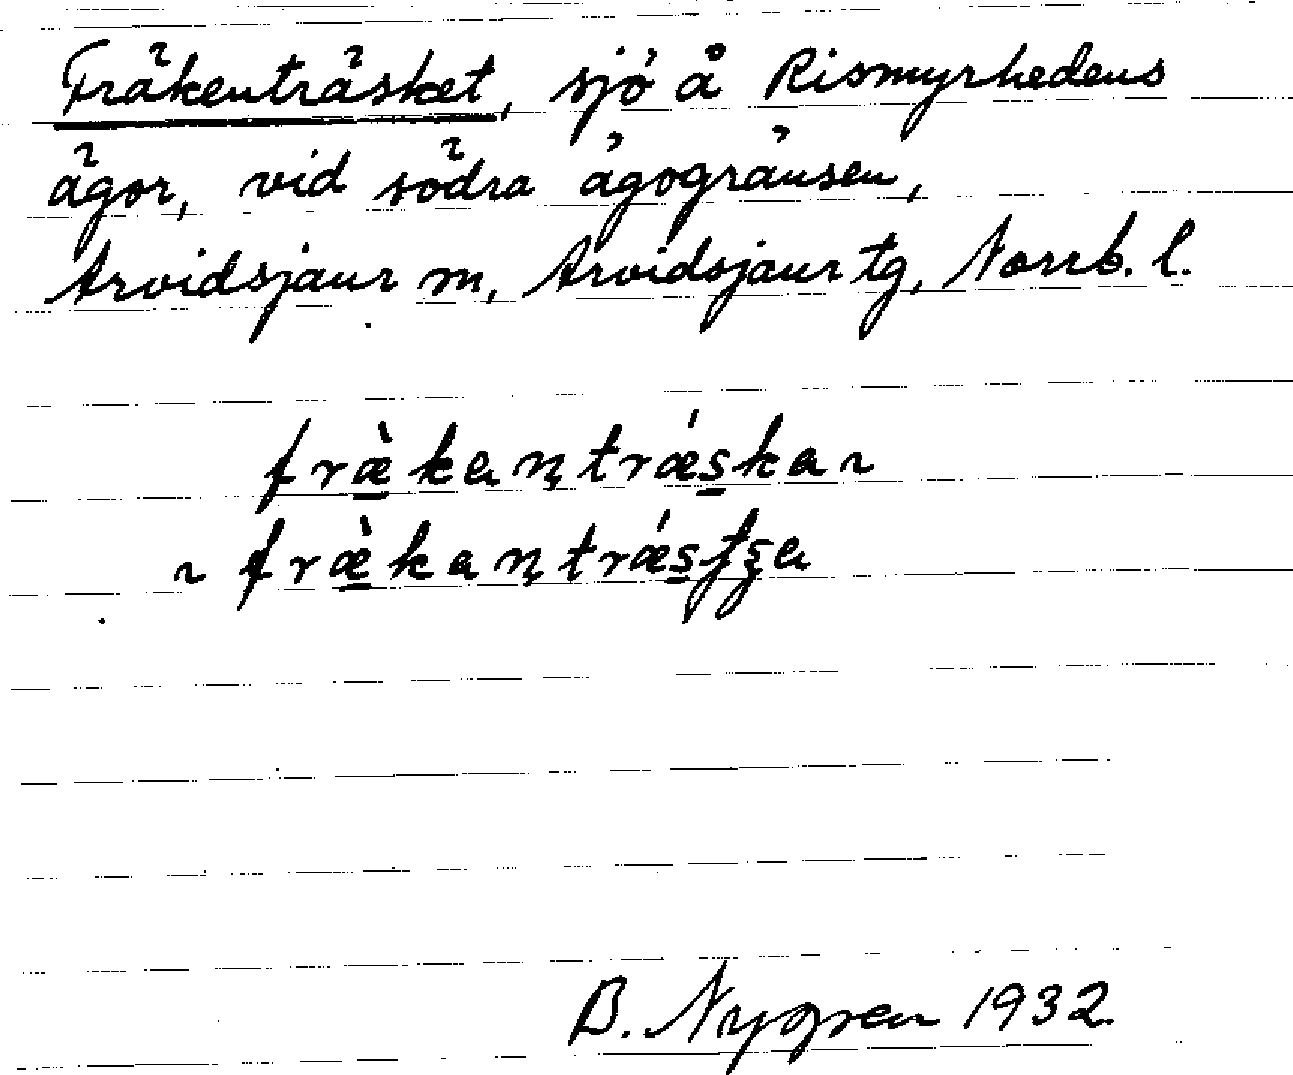 Fräkenträsket, sjö å Rismyrhedens
ägor, vid södra ägogränsen,
Arvidsjaur sn, Arvidsjaur tg, Norrb. l.
fræ̀kențrǽskeɩ
~ fræ̀kanțrǽstʂa
B. Nygren 1932.